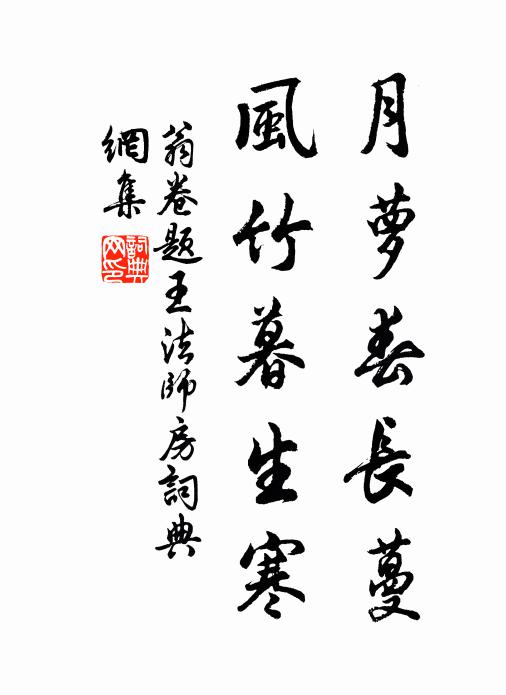 月萝春長蔓
風竹暮生寒
翁卷題王法師房詞典
網集
詞典網印